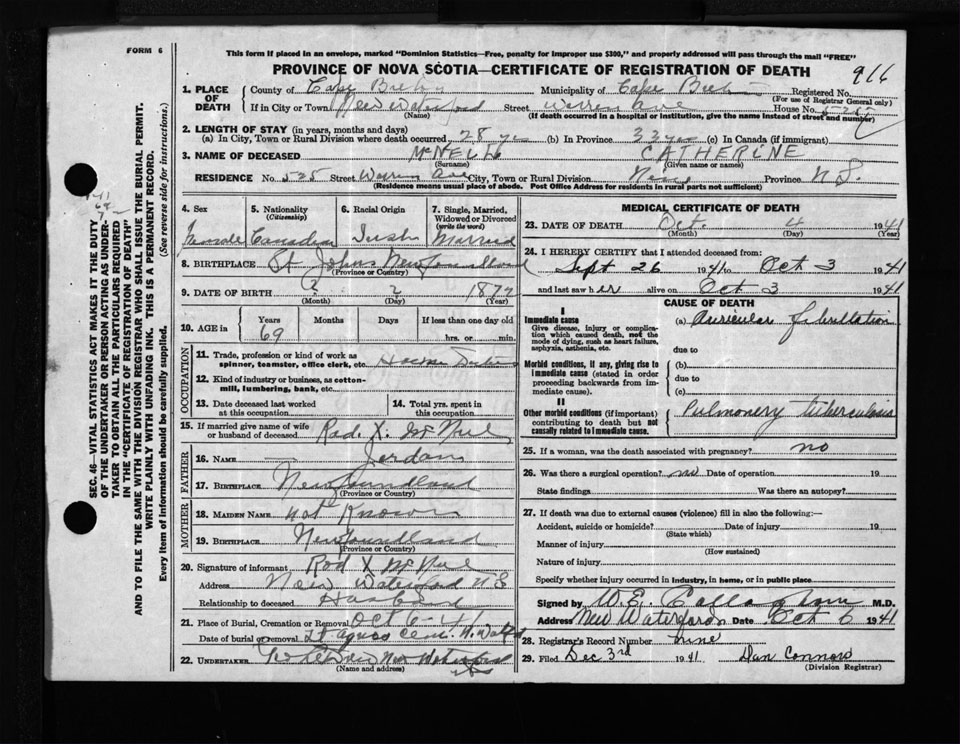 FORM 6
This form if placed in an envelope, marked "Dominion Statistics—Free, penalty for improper use $300," and properly addressed will pass through the mail "FREE"
PROVINCE OF NOVA SCOTIA—CERTIFICATE OF REGISTRATION OF DEATH
916
1. PLACE OF DEATH
County of Cape Breton Municipality of Cape Breton Registered No.
(For use of Registrar General only)
If in City or Town New Waterford Street Warren Ave House No. 525
(Name) (If death occurred in a hospital or institution, give the name instead of street and number)
2. LENGTH OF STAY (in years, months and days)
(a) In City, Town or Rural Division where death occurred 28 yrs (b) In Province 33 yrs (c) In Canada (if immigrant)
3. NAME OF DECEASED McNEIL CATHERINE
(Surname) (Given name or names)
RESIDENCE No. 525 Street Warren Ave City, Town or Rural Division Province N S.
(Residence means usual place of abode. Post Office Address for residents in rural parts not sufficient)
4. Sex Female
5. Nationality (Citizenship) Canadian
6. Racial Origin Irish
7. Single, Married, Widowed or Divorced (write the word) Married
8. BIRTHPLACE St Johns Newfoundland
(Province or Country)
9. DATE OF BIRTH ? ? 1872
(Month) (Day) (Year)
10. AGE in Years Months Days If less than one day old
69 hrs. or min.
OCCUPATION
11. Trade, profession or kind of work as spinner, teamster, office clerk, etc. House Duties
12. Kind of industry or business, as cotton-mill, lumbering, bank, etc.
13. Date deceased last worked at this occupation
14. Total yrs. spent in this occupation
15. If married give name of wife or husband of deceased Rod. X. McNeil
FATHER
16. NAME — Jordan
17. BIRTHPLACE Newfoundland
(Province or Country)
MOTHER
18. MAIDEN NAME not Known
19. BIRTHPLACE Newfoundland
(Province or Country)
20. Signature of informant Rod X McNeil
Address New Waterford N S
Relationship to deceased Husband
21. Place of Burial, Cremation or Removal Oct 6 - 41
Date of burial or removal St Agnes Cem. N. Watfd
22. UNDERTAKER New Waterford
(Name and address)
MEDICAL CERTIFICATE OF DEATH
23. DATE OF DEATH Oct. 4 1941
(Month) (Day) (Year)
24. I HEREBY CERTIFY that I attended deceased from:
Sept 26 1941 to Oct 3 1941
and last saw her alive on Oct 3 1941
CAUSE OF DEATH
I
Immediate cause
Give disease, injury or complication which caused death, not the mode of dying, such as heart failure, asphyxia, asthenia, etc.
(a) Auricular fibrillation
due to
Morbid conditions, if any, giving rise to immediate cause (stated in order proceeding backwards from immediate cause).
(b)
due to
(c)
II
Other morbid conditions (if important) contributing to death but not causally related to immediate cause.
Pulmonery Tuberculosis
25. If a woman, was the death associated with pregnancy? no
26. Was there a surgical operation? no Date of operation 19
State findings Was there an autopsy?
27. If death was due to external causes (violence) fill in also the following:—
Accident, suicide or homicide? Date of injury 19
(State which)
Manner of injury
(How sustained)
Nature of injury
Specify whether injury occurred in industry, in home, or in public place
Signed by W. E. Callaghan M.D.
Address New Waterford Date Oct 6 1941
28. Registrar's Record Number nine
29. Filed Dec 3rd 1941 Dan Connors
(Division Registrar)
SEC. 46—VITAL STATISTICS ACT MAKES IT THE DUTY
OF THE UNDERTAKER OR PERSON ACTING AS UNDER-
TAKER TO OBTAIN ALL THE PARTICULARS REQUIRED
IN THE "CERTIFICATE OF REGISTRATION OF DEATH"
AND TO FILE THE SAME WITH THE DIVISION REGISTRAR WHO SHALL ISSUE THE BURIAL PERMIT.
WRITE PLAINLY WITH UNFADING INK. THIS IS A PERMANENT RECORD.
Every item of information should be carefully supplied. (See reverse side for instructions.)